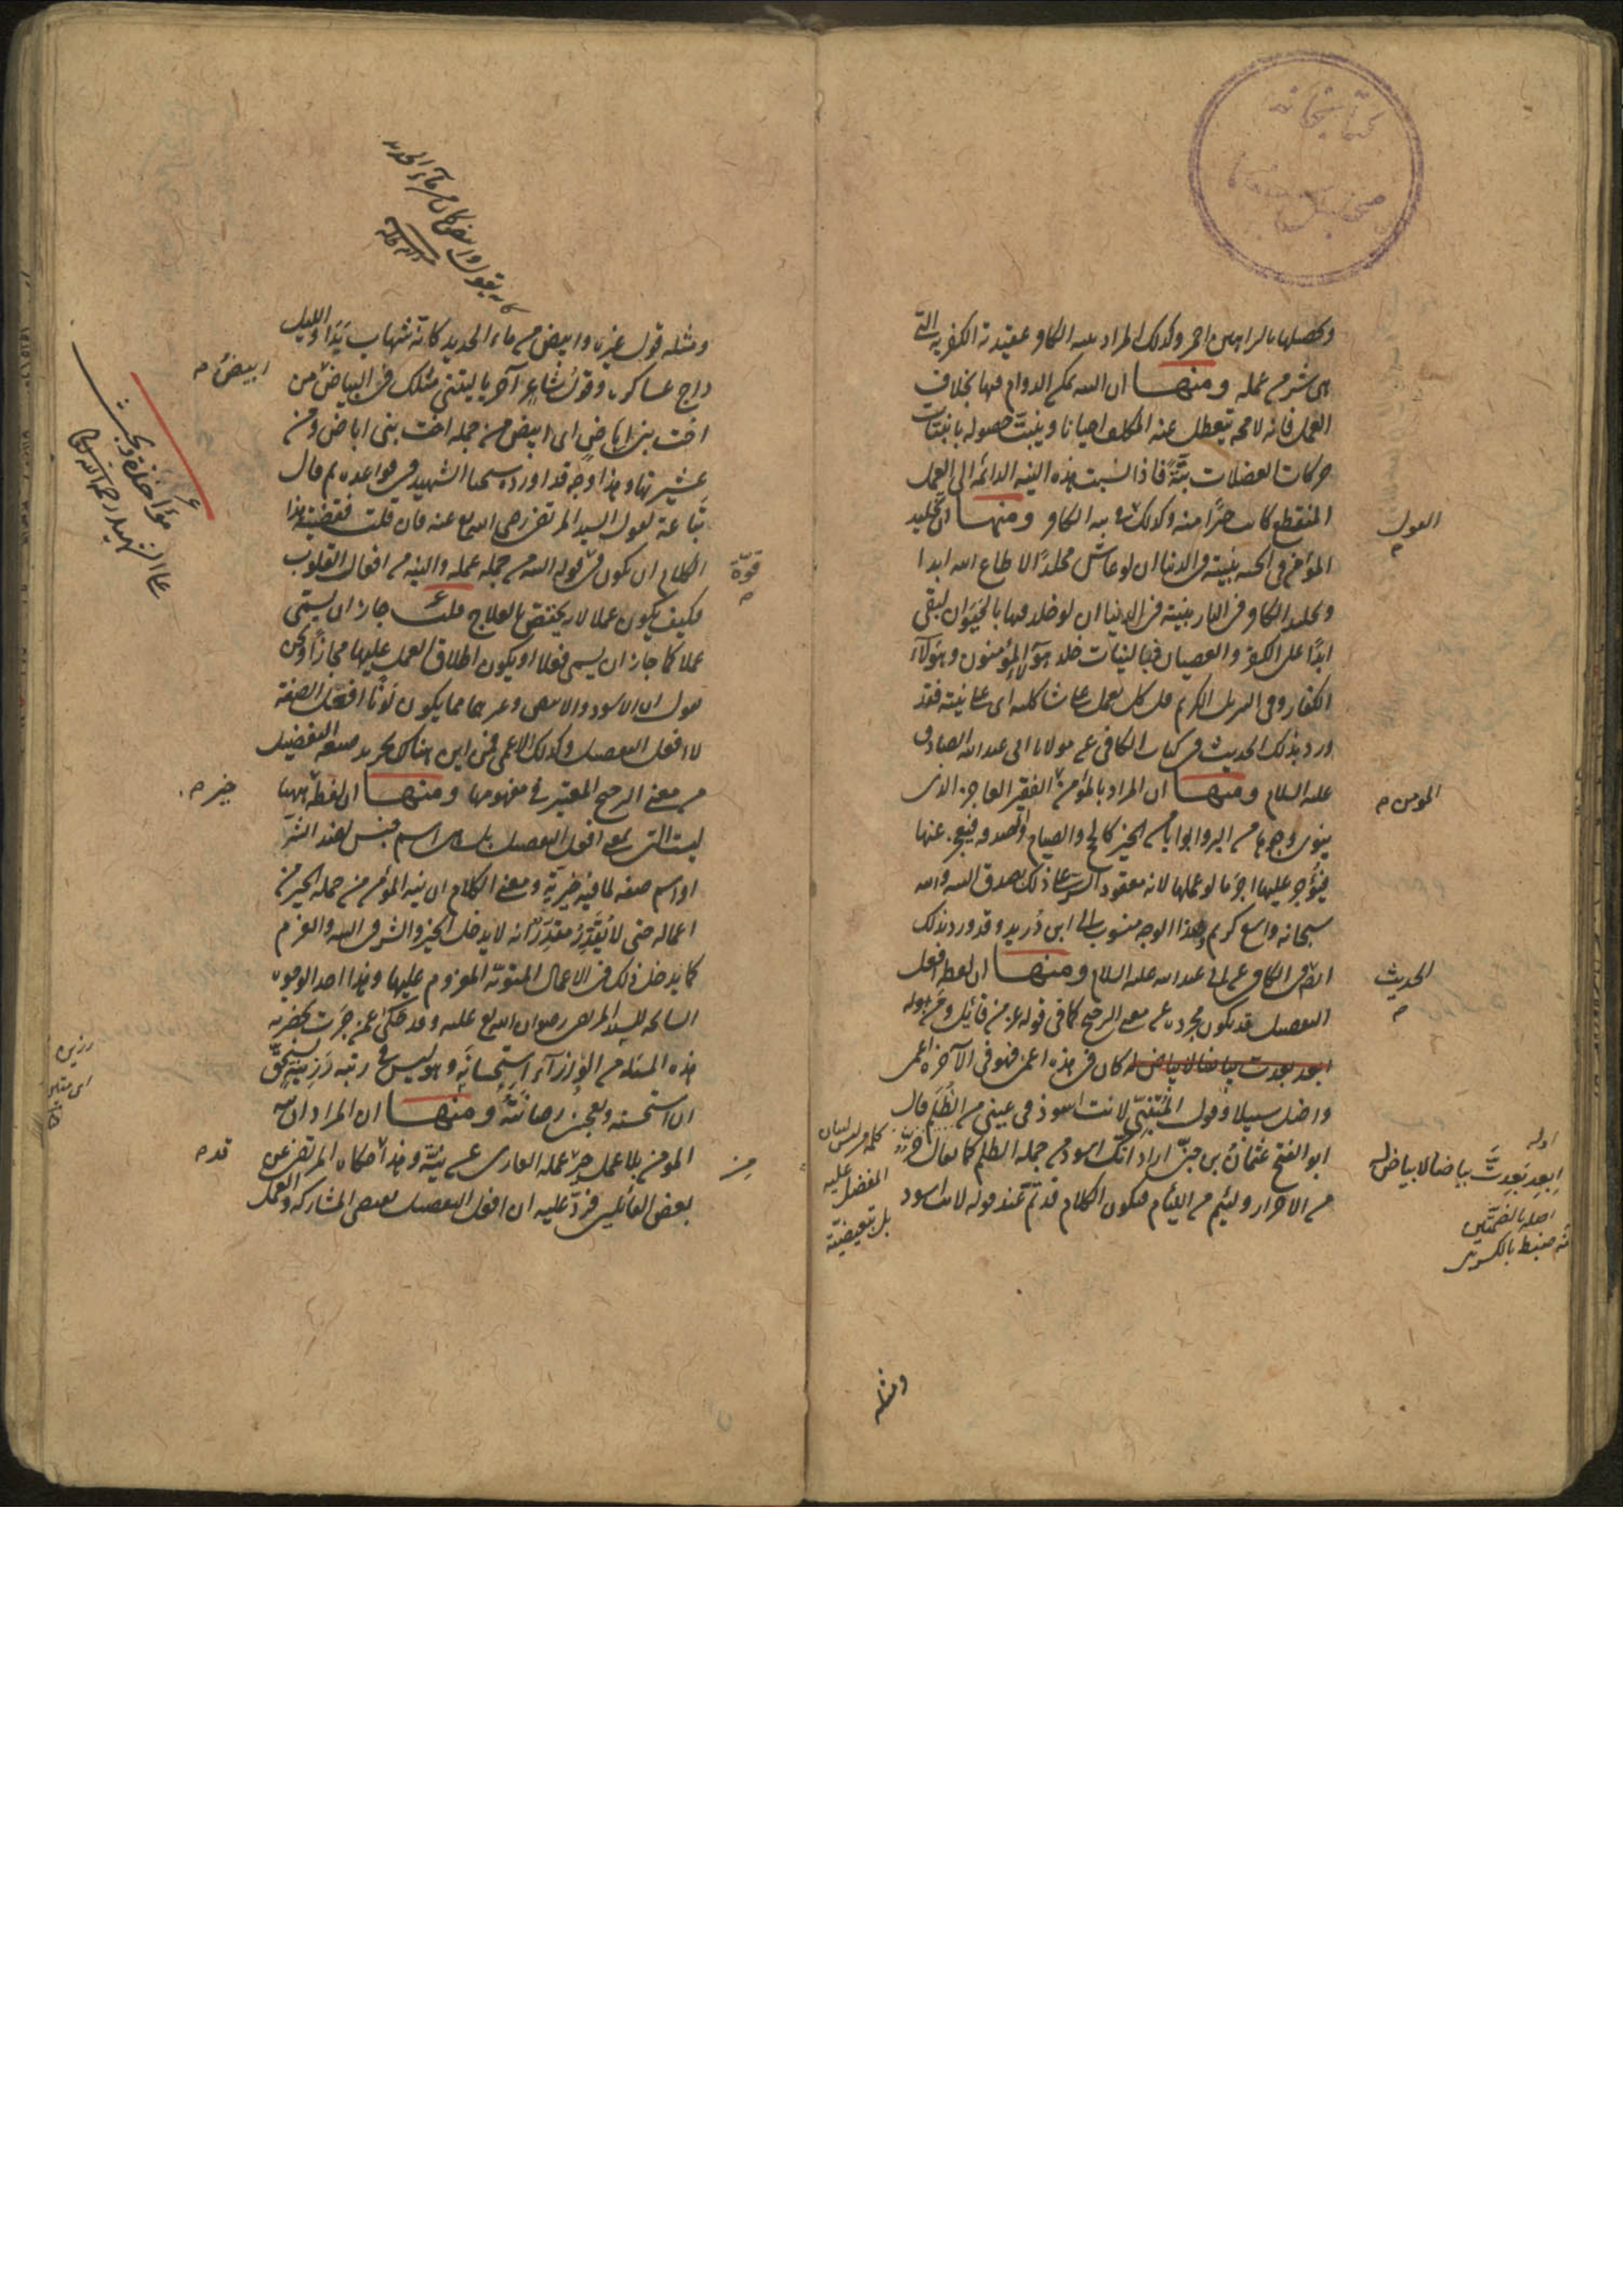 كتابخانه
مجلس
وتحصيلها بالبراهين احمز وكذلك المراد بنيه الكافر عقيدته الكفريه التى
هى شر من عمله ومنها ان النيه يمكن الدوام فيها بخلاف
العمل فانه لا محه يتعطل عنه المكلف احيانا ويثبت حصوله بانبتات
حركات العضلات بتة فاذا نسبت هذه النيه الدائمه الى العمل
المنقطع كانت خيرا منه وكذلك فى نيه الكافر ومنها ان تخليد
القول
المؤمن فى الجنه بنيته فى الدنيا ان لو عاش مخلدا لاطاع الله ابدا
وتخليد الكافر فى النار بنيته فى الدنيا ان لو خلد فيها بالحيوان لبقى
ابدا على الكفر والعصيان فبالنيات خلد هؤلاء المؤمنون وهؤلاء
الكفار وفى التنزيل الكريم قل كل يعمل على شاكلته اى على نيته فقد
ورد بذلك الحديث فى كتاب الكافى عن مولانا ابى عبد الله الصادق
عليه السلام ومنها ان المراد بالمؤمن الفقير العاجز الذى
المؤمن
ينوى وجوها من البر وابوابا من الخير كالحج والصيام والصدقه فيعجز عنها
فيؤجر عليها اجر ما لو عملها لانه معقود السر على ذلك بصدق النيه والله
سبحانه واسع كريم وهذا الوجه منسوب الى ابن دريد وقد ورد بذلك
ايضا فى الكافى عن ابى عبد الله عليه السلام ومنها ان لفظة افعل
الحديث
التفضيل قد تكون مجردة عن معنى الترجيح كما فى قوله عز من قائل ومن
ابعد بعدت بياضا لا بياض له كان فى هذه اعمى فهو فى الآخرة اعمى
واضل سبيلا وقول المتنبى لانت اسود فى عينى من الظلم قال
ابو الفتح عثمان بن جنى اراد انك اسود من جملة الظلم كما يقال حر
من الاحرار ولئيم من اللئام فيكون الكلام قد تم عند قوله لانت اسود
اوله
ابعد بعدت بياضا لا بياض له
اصله بالضمتين
ضبط بالكسر
كلمة من ليس لبيان
المفضل عليه
بل تبعيضية
ومثله
ومثله قول غيره وابيض من ماء الحديد كانه شهاب بدا والليل
داج عساكره وقول شاعر آخر يا ليتنى مثلك فى البياض ابيض من
ابيض
اخت بنى اباض اى ابيض من جملة اخت بنى اباض ومن
عشيرتها وهذا وجه قد اورده شيخنا الشهيد فى قواعده ثم قال
تباعة لقول السيد المرتضى رضى الله تع عنه فان قلت فقضية هذا
الكلام ان يكون فى قوة قوله النيه من جملة عمله والنيه من افعال القلوب
قوة
فكيف يكون عملا لانه يختص بالعلاج قلت جاز ان يسمى
عملا كما جاز ان يسمى فعلا او يكون اطلاق العمل عليها مجازا ونحن
نقول ان الاسود والابيض وغيرهما مما يكون لونا افعل الصفة
لا افعل التفضيل وكذلك الاعمى فمن اين هناك تجريد صيغه التفضيل
من معنى الترجيح المعتبر فى مفهومها ومنها ان لفظة خير ههنا
خير
ليست التى بمعنى افعل التفضيل بل هى اسم جنس لضد الشر
او اسم صفه لما فيه خيرية ومعنى الكلام ان نيه المؤمن من جمله الخير من
اعماله حتى لا يقدر مقدر انه لا يدخل الخير والشر فى النيه والعزم
كما يدخل ذلك فى الاعمال المنوية المعزوم عليها وهذا احد الوجوه
السانحه للسيد المرتضى رضوان الله تع عليه وقد حكى عمن جرت بحضرته
هذه المسئله من الوزراء استحسانه وهو ليس فى رتبة رزينة يستحق
ان استحسنه ويعجب رصانته ومنها ان المراد ان نيه
المؤمن بلا عمل خير من عمله العارى عن نية وهذا حكاه المرتضى عن
بعض القائلين فرد عليه ان افعل التفضيل يقتضى المشاركه والعمل
قده